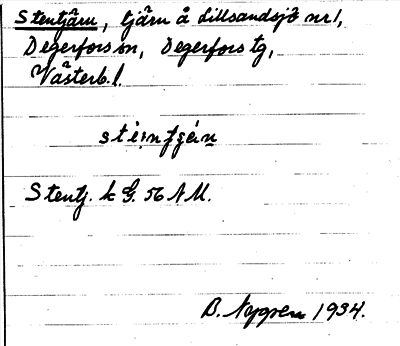 Stentjärn, tjärn å Lillsandsjö nr 1,
Degerfors sn, Degerfors tg,
Västerb. l.
Stentj. k G. 56 NM.
B. Nygren 1934.